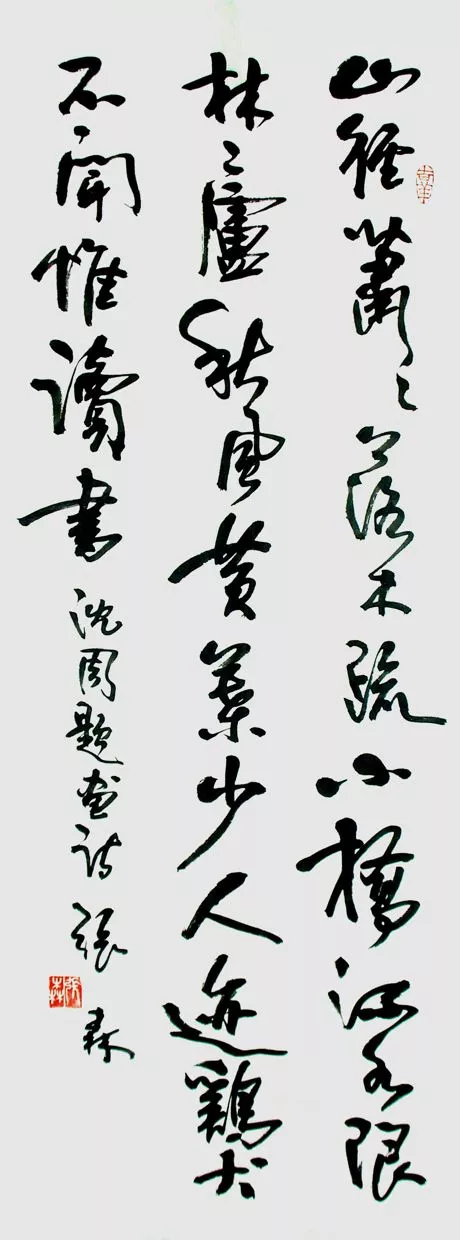 山徑蕭〻落木疏小橋流水限
林廬秋風黄葉少人迹鷄犬
不聞惟讀書 沈周題畫詩 張森
張森